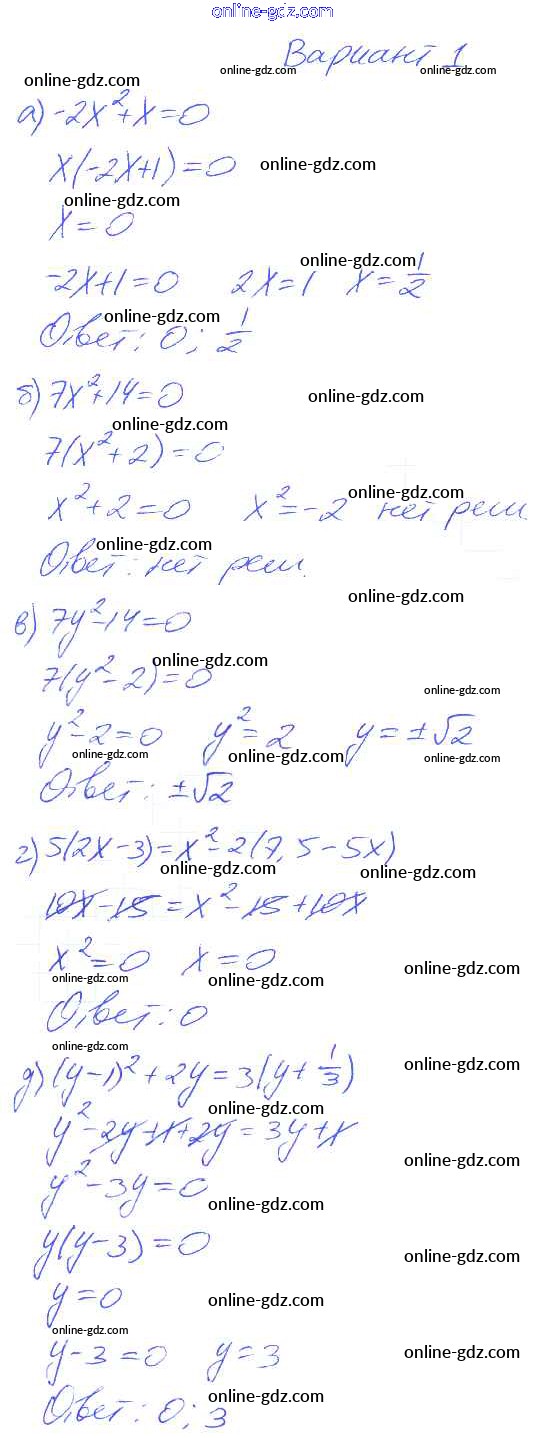 online-gdz.com
Вариант 1
online-gdz.com online-gdz.com online-gdz.com
а) -2x²+x=0
x(-2x+1)=0 online-gdz.com
online-gdz.com
x=0
online-gdz.com
-2x+1=0 2x=1 x=1/2
online-gdz.com
Ответ: 0; 1/2
б) 7x²+14=0 online-gdz.com
online-gdz.com
7(x²+2)=0
online-gdz.com
x²+2=0 x²=-2 нет реш.
online-gdz.com
Ответ: нет реш.
online-gdz.com
в) 7y²-14=0
online-gdz.com
7(y²-2)=0
online-gdz.com
y²-2=0 y²=2 y=±√2
online-gdz.com online-gdz.com online-gdz.com
Ответ: ±√2
г) 5(2x-3)=x²-2(7,5-5x)
online-gdz.com online-gdz.com
10x-15=x²-15+10x
x²=0 x=0 online-gdz.com
online-gdz.com online-gdz.com
Ответ: 0
online-gdz.com online-gdz.com
д) (y-1)²+2y=3(y+1/3)
online-gdz.com
y²-2y+1+2y=3y+1
online-gdz.com
y²-3y=0
online-gdz.com
y(y-3)=0 online-gdz.com
y=0 online-gdz.com
online-gdz.com
y-3=0 y=3 online-gdz.com
online-gdz.com
Ответ: 0; 3